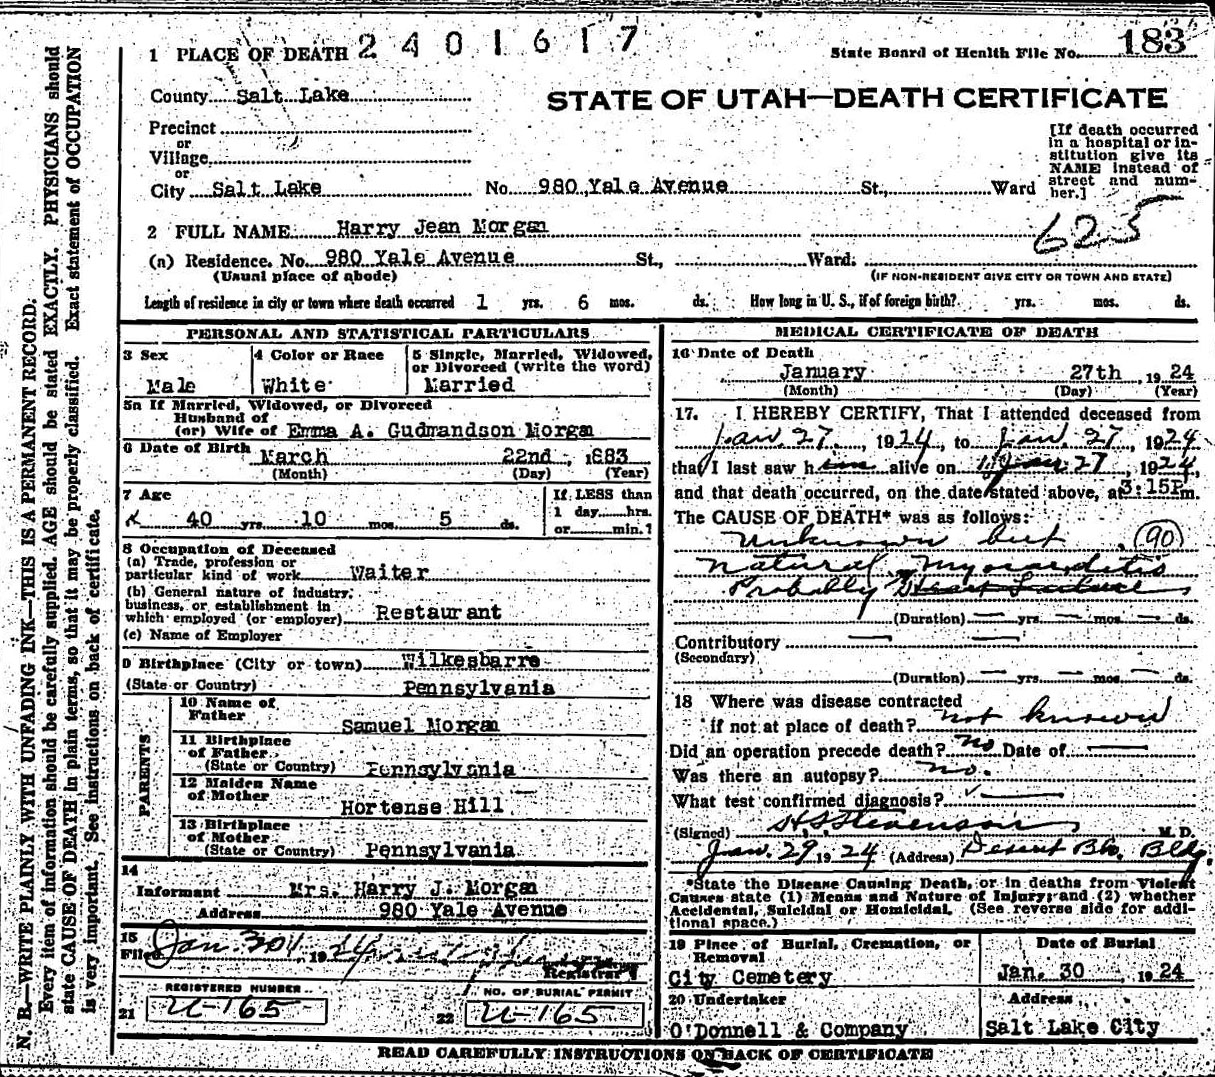 2401617
1 PLACE OF DEATH
State Board of Health File No. 183
County Salt Lake
STATE OF UTAH—DEATH CERTIFICATE
Precinct
or
Village
or
City Salt Lake No. 980 Yale Avenue St., Ward
[If death occurred
in a hospital or in-
stitution give its
NAME instead of
street and num-
ber.]
2 FULL NAME Harry Jean Morgan
625
(a) Residence. No. 980 Yale Avenue St., Ward.
(Usual place of abode)
(IF NON-RESIDENT GIVE CITY OR TOWN AND STATE)
Length of residence in city or town where death occurred 1 yrs. 6 mos. ds. How long in U. S., if of foreign birth? yrs. mos. ds.
PERSONAL AND STATISTICAL PARTICULARS
3 Sex
Male
4 Color or Race
White
5 Single, Married, Widowed,
or Divorced (write the word)
Married
5a If Married, Widowed, or Divorced
Husband of
(or) Wife of Emma A. Gudmandson Morgan
6 Date of Birth March 22nd, 1883
(Month) (Day) (Year)
7 Age
40 yrs. 10 mos. 5 ds.
If LESS than
1 day hrs.
or min.?
8 Occupation of Deceased
(a) Trade, profession or
particular kind of work Waiter
(b) General nature of industry,
business, or establishment in
which employed (or employer) Restaurant
(c) Name of Employer
9 Birthplace (City or town) Wilkesbarre
(State or Country) Pennsylvania
PARENTS
10 Name of
Father Samuel Morgan
11 Birthplace
of Father
(State or Country) Pennsylvania
12 Maiden Name
of Mother Hortense Hill
13 Birthplace
of Mother
(State or Country) Pennsylvania
14
Informant Mrs. Harry J. Morgan
Address 980 Yale Avenue
15
Filed Jan. 30 19
Registrar
REGISTERED NUMBER
21 U-165
NO. OF BURIAL PERMIT
22 U-165
MEDICAL CERTIFICATE OF DEATH
16 Date of Death
January 27th, 1924
(Month) (Day) (Year)
17. I HEREBY CERTIFY, That I attended deceased from
Jan. 27, 1924, to Jan. 27, 1924
that I last saw him alive on Jan 27, 1924,
and that death occurred, on the date stated above, at 3:15P m.
The CAUSE OF DEATH* was as follows:
Unknown but (90)
Natural, Myocarditis
Probably Heart Failure
(Duration) — yrs. — mos. — ds.
Contributory — —
(Secondary)
(Duration) — yrs. — mos. — ds.
18 Where was disease contracted
if not at place of death? not known
Did an operation precede death? no Date of —
Was there an autopsy? no.
What test confirmed diagnosis? —
(Signed) H. S. Stevenson M. D.
Jan. 29, 1924 (Address) Deseret Bk. Bldg.
*State the Disease Causing Death, or in deaths from Violent
Causes state (1) Means and Nature of Injury; and (2) whether
Accidental, Suicidal or Homicidal. (See reverse side for addi-
tional space.)
19 Place of Burial, Cremation, or
Removal
City Cemetery
Date of Burial
Jan. 30 1924
20 Undertaker
O'Donnell & Company
Address
Salt Lake City
READ CAREFULLY INSTRUCTIONS ON BACK OF CERTIFICATE
N. B.—WRITE PLAINLY WITH UNFADING INK—THIS IS A PERMANENT RECORD.
Every item of information should be carefully supplied. AGE should be stated EXACTLY. PHYSICIANS should
state CAUSE OF DEATH in plain terms, so that it may be properly classified. Exact statement of OCCUPATION
is very important. See instructions on back of certificate.